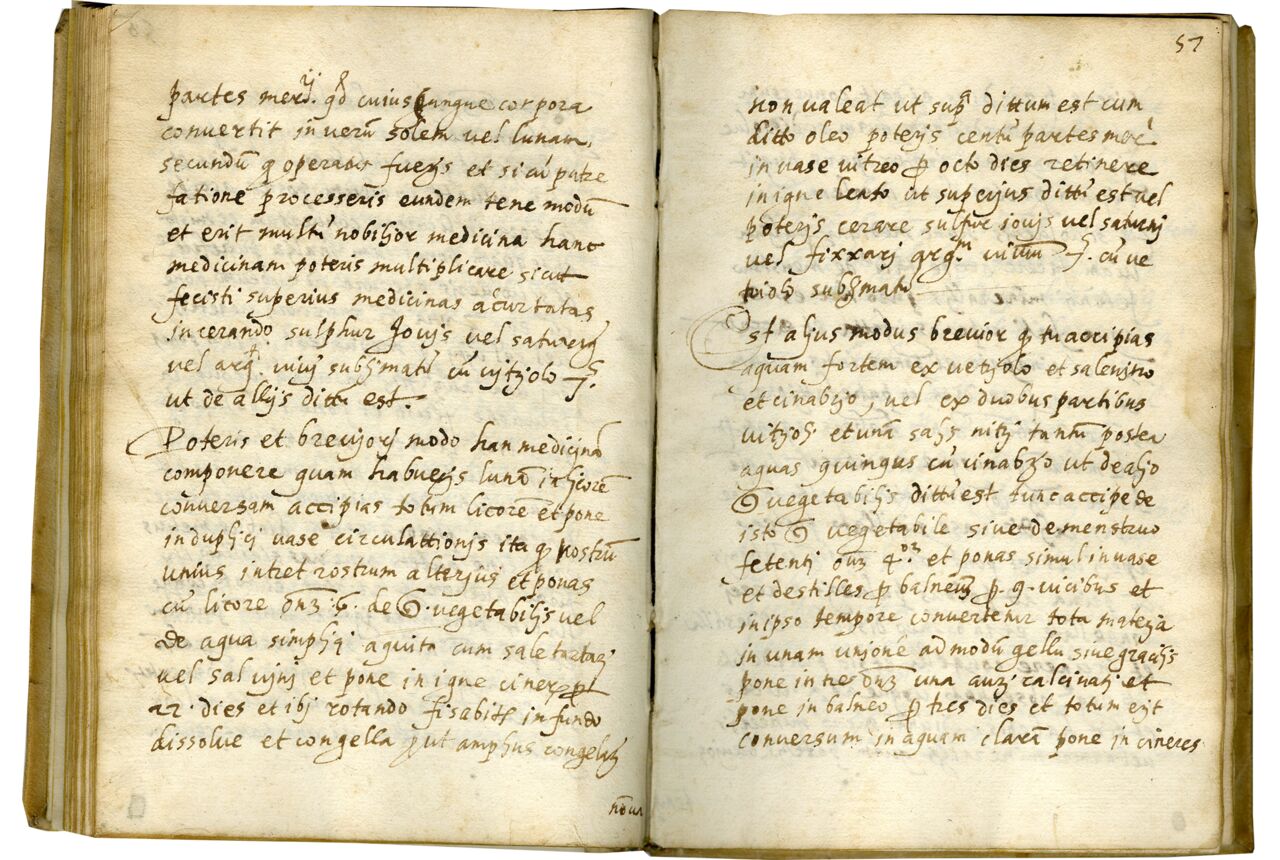 partes mercÿ. qđ cuiuscunque corpora
convertit in verũ solem vel lunam
secundũ q operatus fuerjs et si cũ putre
fatione processerjs eundem tene modũ
et erit multũ nobiljor medicina hanc
medicinam poteris multiplicare sicut
fecisti superius medicinas acurtatas
incerando sulphur Jovjs vel saturnj
vel arg. vivj subljmatũ cũ vitrjolo
ut de alljs dittũ est.
Poteris et brevjorj modo han medicinã
componere quam habuerjs lunã in ljcorẽ
conversam accipias totum licorẽ et pone
in dupljcj vase circulattionjs ita q rostrũ
unius intret rostrum alterjus et ponas
cũ licore onz. 6. de vegetabiljs vel
de aqua simpljcj aquita cum sale tartarj
vel sal vjnj et pone in igne ciner
12. dies et ibj rotando fisabitʳ in fundo
dissolve et congella ut amplius congelarj
nõ va
57
non valeat ut supª dittum est cum
ditto oleo poterjs centũ partes merc
in vase vitreo p octo dies retinere
in igne lento ut superjus dittũ est vel
poterjs cerare sulfur jovjs vel saturnj
vel fixxarj arg. vivum cũ ve
trioło subljmatũ
Est aljus modus brevior q tu accipias
aquam fortem ex vetrjolo et salenjtro
et cinabrjo, vel ex duobus partibus
vitrjolj et unã saljs nitrj tantũ postea
aquas quingus cũ cinabrjo ut de aljo
vegetabiljs dittũ est tunc accipe de
isto vegetabile sive de menstruo
fetentj onz 4 et ponas simul in vase
et destilles p balneum p. 9. vicibus et
in ipso tempore convertetur tota materja
in unam unjonẽ ad modũ gellu sive gracijs
pone in tre onz una aurj calcinatj et
pone in balneo p tres dies et totum erjt
conversum in aquam clarã pone in cineres